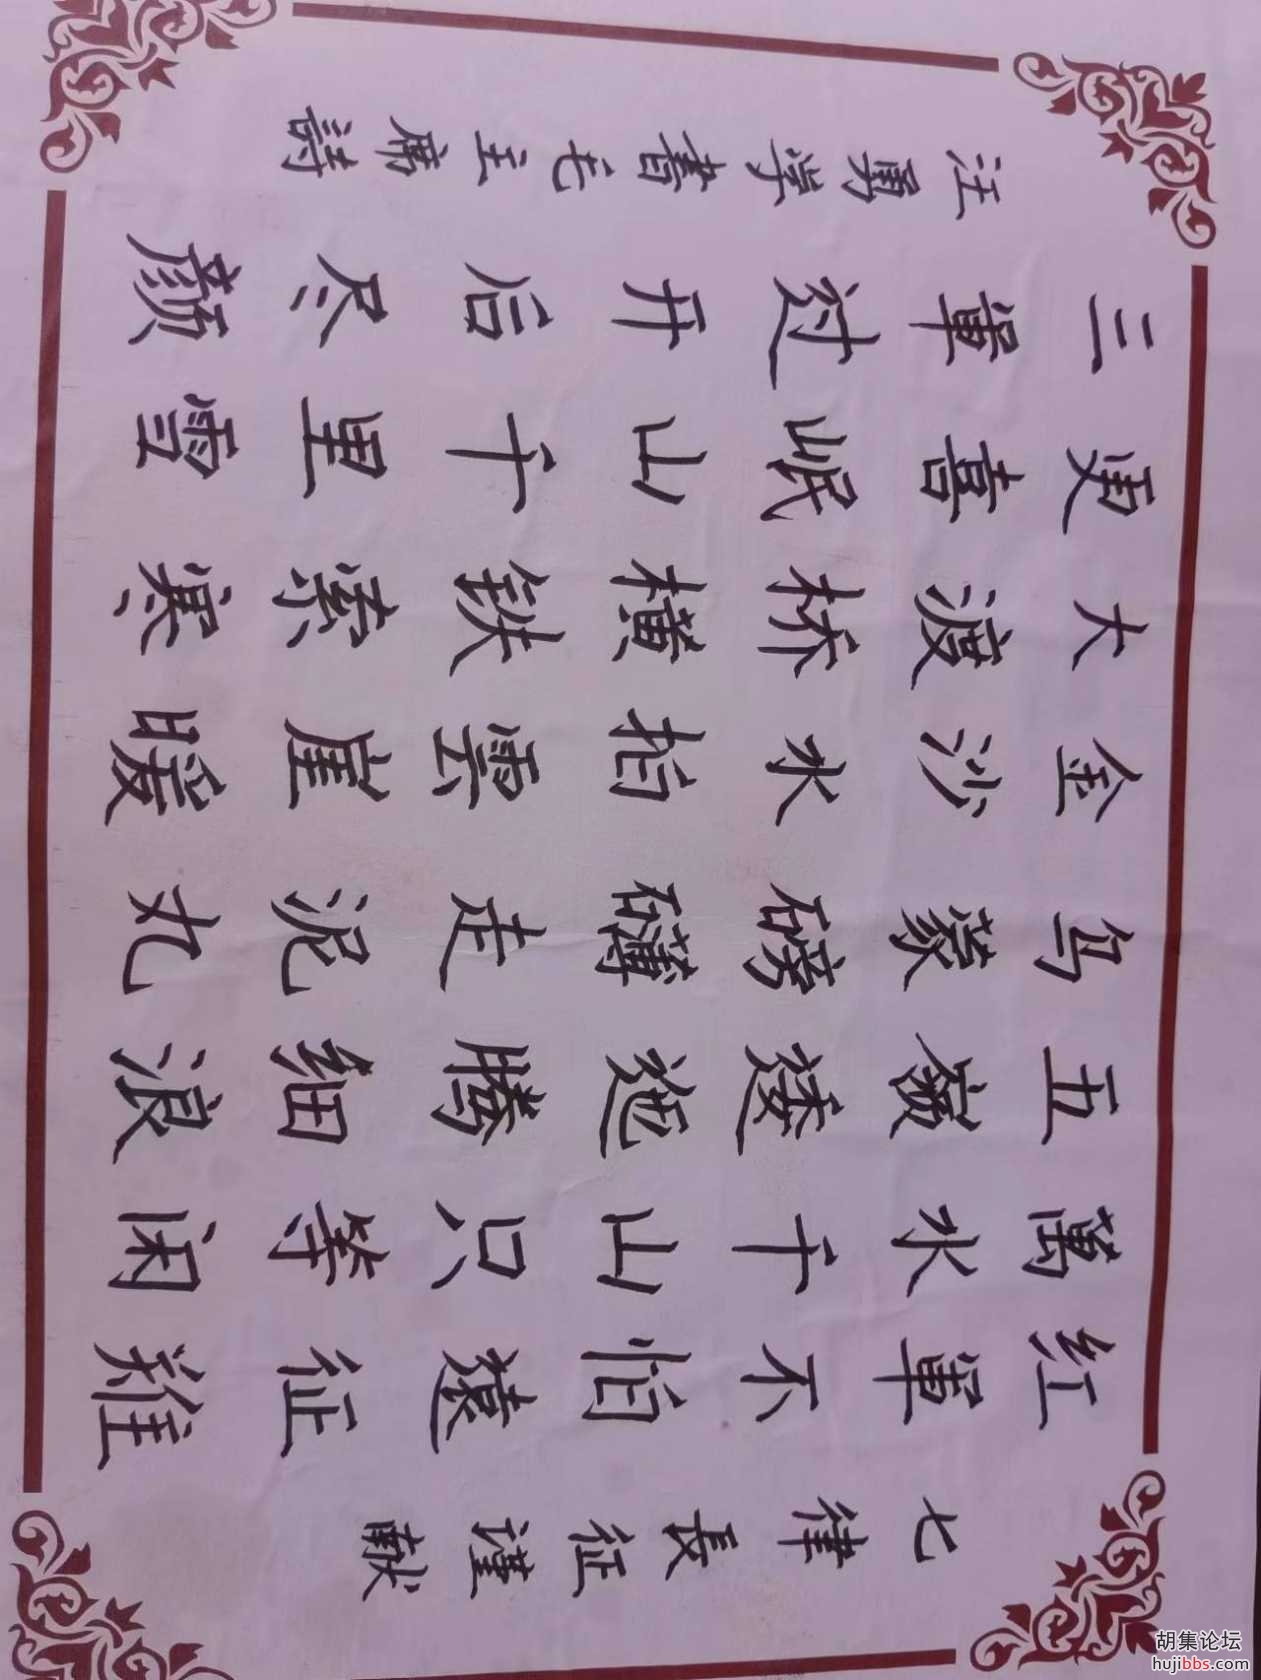 七律長征谨献
红軍不怕遠征难
萬水千山只等闲
五嶺逶迤腾细浪
乌蒙磅礴走泥丸
金沙水拍雲崖暖
大渡桥横铁索寒
更喜岷山千里雪
三軍过开后尽颜
汪勇学書毛主席詩
胡集论坛
hujibbs.com